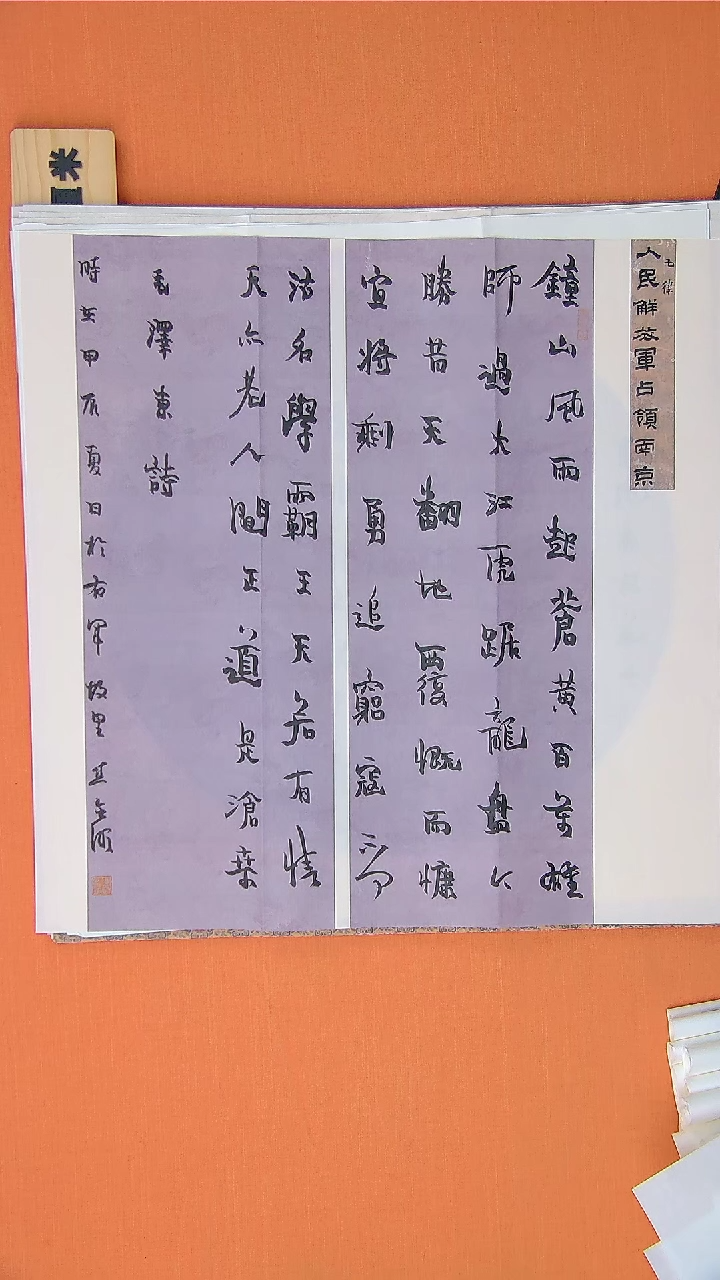 七律
人民解放軍占領南京
鐘山風雨起蒼黃百萬雄
師過大江虎踞龍盤今
勝昔天翻地覆慨而慷
宜將剩勇追窮寇不可
沽名學霸王天若有情
天亦老人間正道是滄桑
毛澤東詩
時在甲辰夏日於右軍故里
米